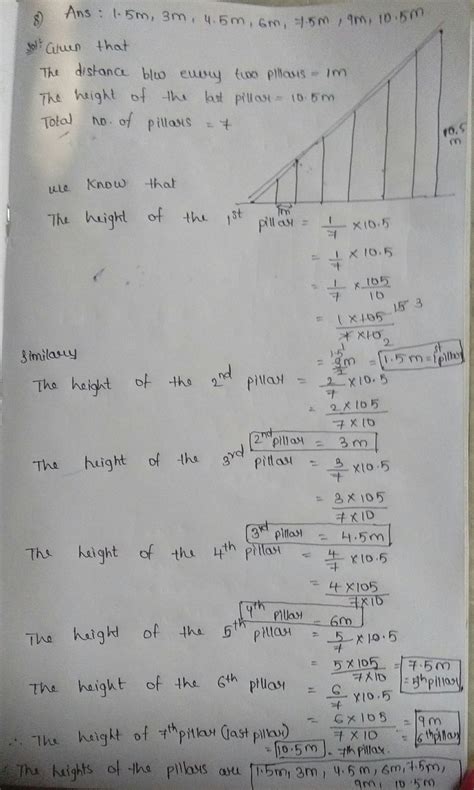 8) Ans : 1.5m, 3m, 4.5m, 6m, 7.5m, 9m, 10.5m
Sol: Given that
The distance b/w every two pillars = 1m
The height of the last pillar = 10.5m
Total no. of pillars = 7
10.5
m
we know that
1m
The height of the 1st pillar = 1/7 × 10.5
= 1/7 × 10.5
= 1/7 × 105/10
= 1 × 105 15 3 / 7 × 10 2
Similary
= 3/2 m = 1.5m = 1st pillar
The height of the 2nd pillar = 2/7 × 10.5
= 2 × 105 / 7 × 10
2nd pillar = 3m
The height of the 3rd pillar = 3/7 × 10.5
= 3 × 105 / 7 × 10
3rd pillar = 4.5m
The height of the 4th pillar = 4/7 × 10.5
= 4 × 105 / 7 × 10
4th pillar = 6m
The height of the 5th pillar = 5/7 × 10.5
= 5 × 105 / 7 × 10 = 7.5m = 5th pillar
The height of the 6th pillar = 6/7 × 10.5
= 6 × 105 / 7 × 10 = 9m = 6th pillar
∴ The height of 7th pillar (last pillar)
= 10.5m = 7th pillar.
∴ The heights of the pillars are 1.5m, 3m, 4.5m, 6m, 7.5m,
9m, 10.5m